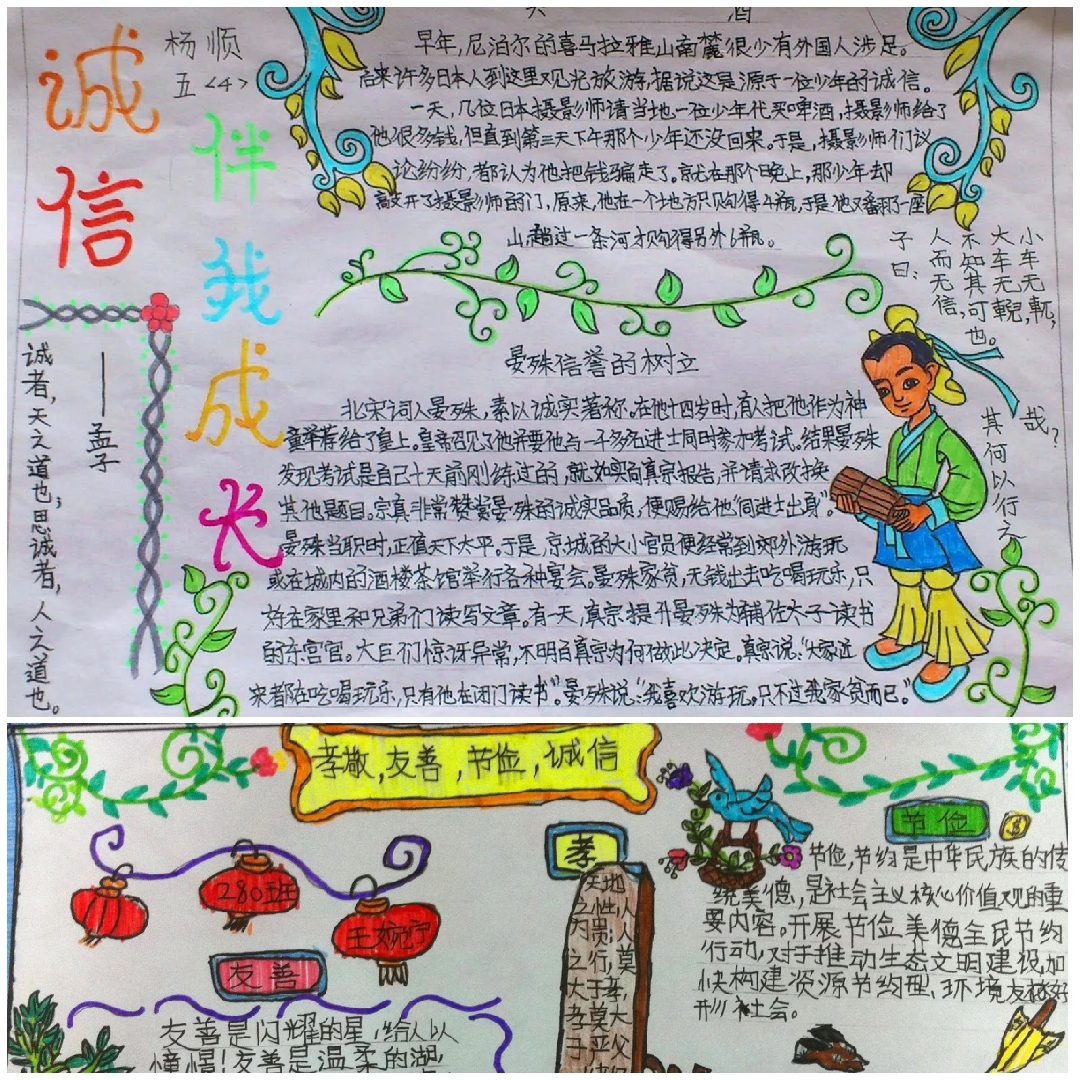 诚信
伴我成长
杨顺
五<4>
酒
早年,尼泊尔的喜马拉雅山南麓很少有外国人涉足。
后来许多日本人到这里观光旅游,据说这是源于一位少年的诚信。
一天,几位日本摄影师请当地一位少年代买啤酒,摄影师给了
他很多钱,但直到第三天下午那个少年还没回来。于是,摄影师们议
论纷纷,都认为他把钱骗走了。就在那个晚上,那少年却
敲开了摄影师的门,原来,他在一个地方只购得4瓶,于是他又翻了一座
山,趟过一条河才购得另外6瓶。
子曰:
人而无信,
不知其可也。
大车无輗,
小车无軏,
其何以行之
哉?
诚者,天之道也;思诚者,人之道也。
——孟子
晏殊信誉的树立
北宋词人晏殊,素以诚实著称。在他十四岁时,有人把他作为神
童举荐给了皇上。皇帝召见了他并要他与一千多名进士同时参加考试。结果晏殊
发现考试是自己十天前刚练过的,就如实向真宗报告,并请求改换
其他题目。宗真非常赞赏晏殊的诚实品质,便赐给他“同进士出身”。
晏殊当职时,正值天下太平。于是,京城的大小官员便经常到郊外游玩
或在城内的酒楼茶馆举行各种宴会。晏殊家贫,无钱出去吃喝玩乐,只
好在家里和兄弟们读写文章。有一天,真宗提升晏殊为辅佐太子读书
的东宫官。大臣们惊讶异常,不明白真宗为何做此决定。真宗说:“大家近
来都在吃喝玩乐,只有他在闭门读书”。晏殊说:“我喜欢游玩,只不过我家贫而已。”
孝敬,友善,节俭,诚信
280班
王婉宁
友善
友善是闪耀的星,给人以
憧憬!友善是温柔的湖,
孝
天地
之性,人
为贵;人
之行,莫
大于孝,
孝莫大
于严父
节俭
节俭,节约是中华民族的传
统美德,是社会主义核心价值观的重
要内容。开展节俭美德全民节约
行动,对于推动生态文明建设,加
快构建资源节约型、环境友好
形社会。